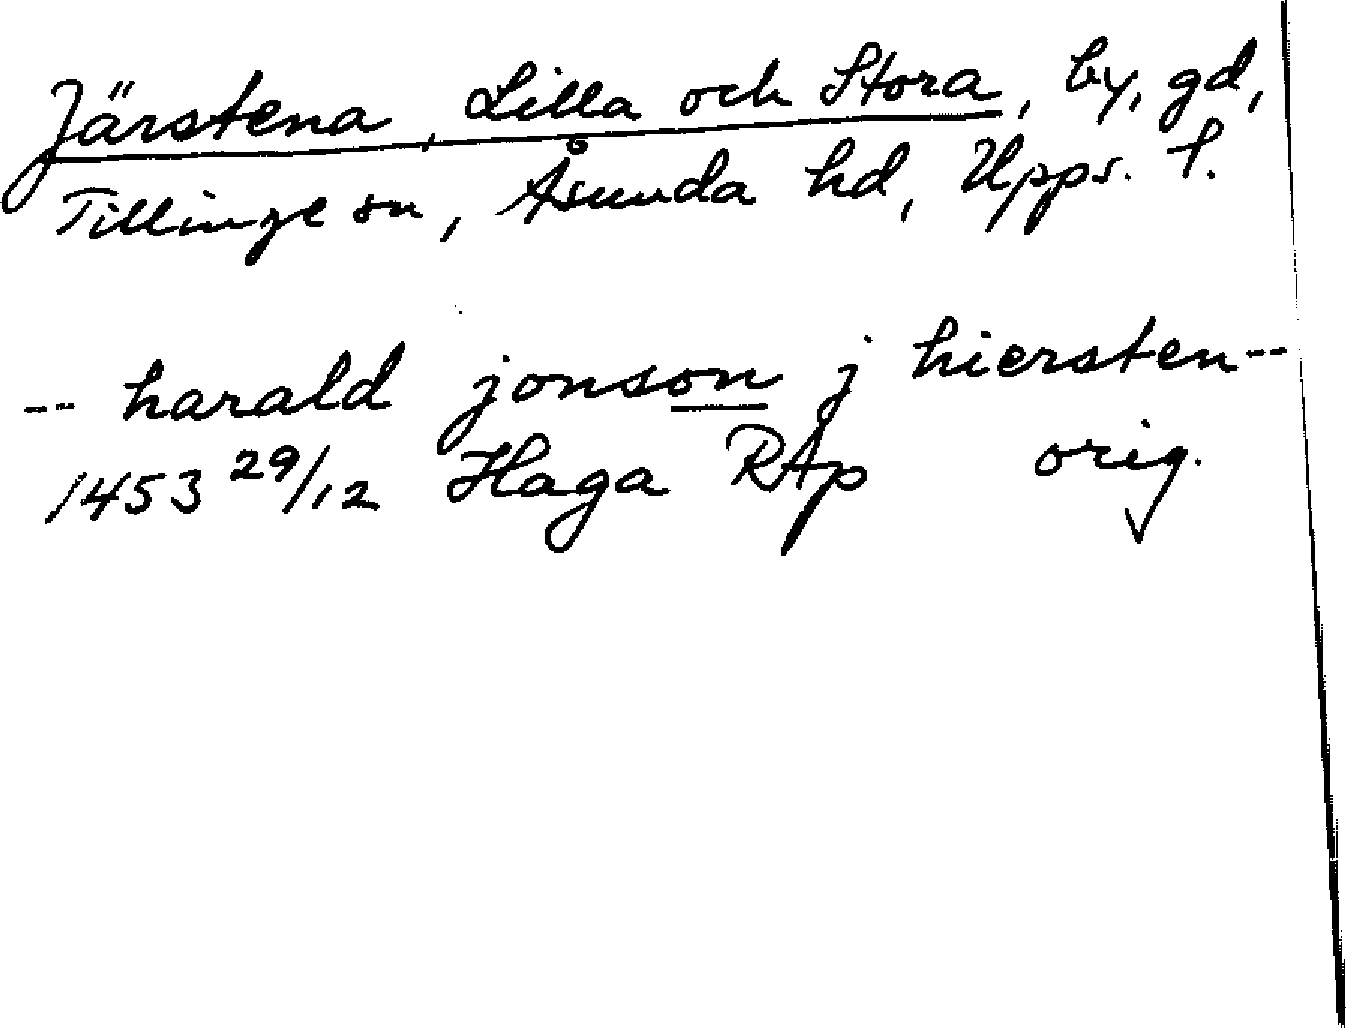 Järstena, Lilla och Stora, by, gd,
Tillinge sn, Åsunda hd, Upps. l.
-- harald jonson j hiersten--
1453 29/12 Haga RAp orig.